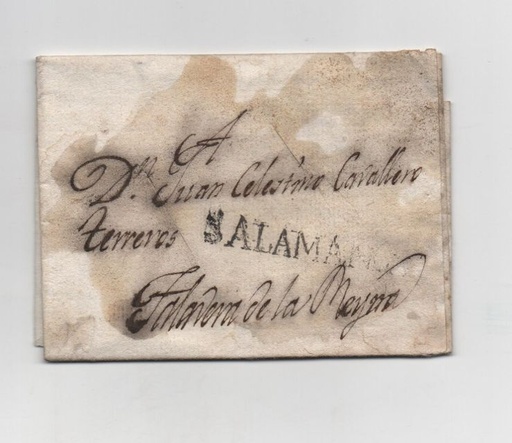 A
Dn. Juan Celestino Cavallero
terreros
SALAMANCA
Talavera de la Reyna